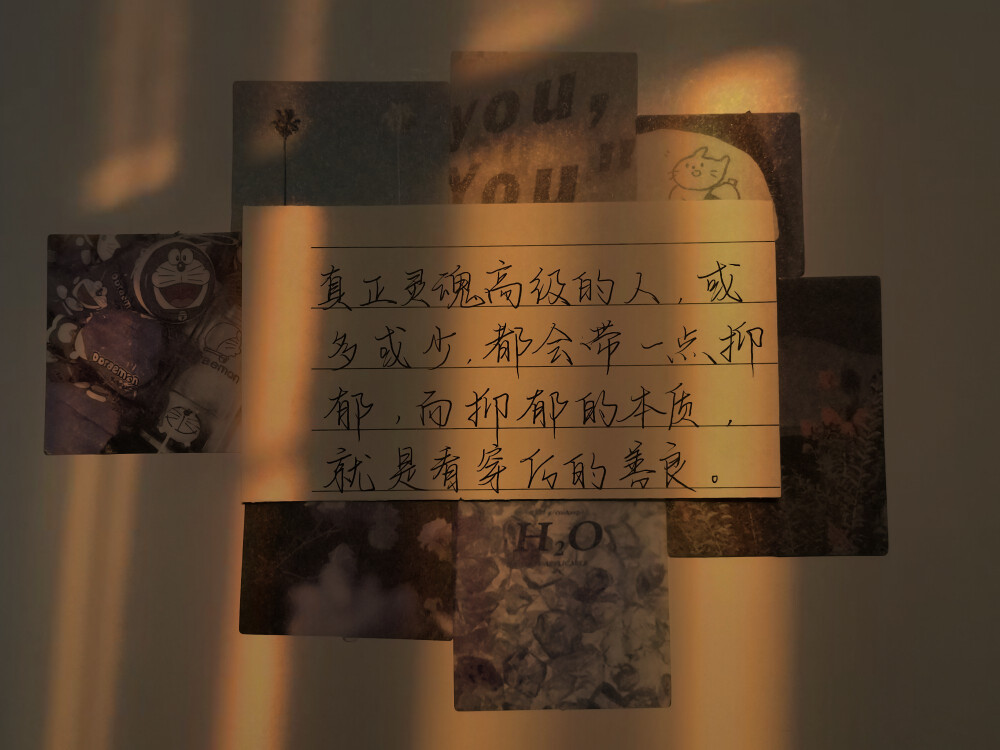 you,
you"
真正灵魂高级的人，或
多或少，都会带一点抑
郁，而抑郁的本质，
就是看穿后的善良。
Doraemon
H₂O